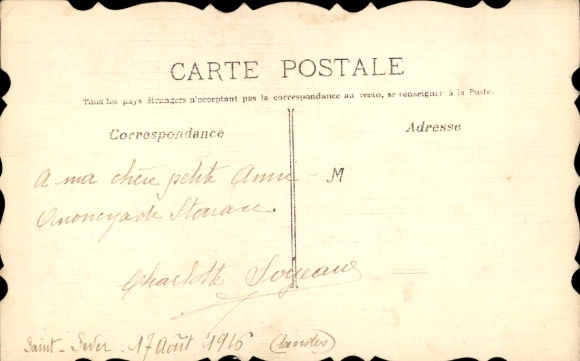 CARTE POSTALE
Tous les pays étrangers n'acceptant pas la correspondance au recto, se renseigner à la Poste.
Correspondance
Adresse
A ma chère petite
M
Charlotte
Saint-Sever. 17 Août 1916 (Landes)